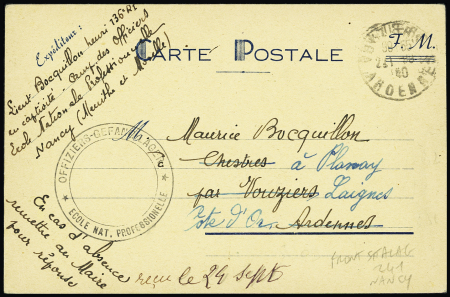 Expéditeur :
Lieut Bocquillon henri 136e RI
en captivité Camp des Officiers
Ecole Nationale Professionnelle
Nancy (Meurthe et Moselle)
CARTE POSTALE
F. M.
VOUZIERS
40
ARDENNES
OFFIZIERS-GEFANG.
ECOLE NAT. PROFESSIONELLE
M. Maurice Bocquillon
Chestres à Planay
par Vouziers Laignes
Côte d'Or Ardennes
En cas d'absence
remettre au Maire
pour réponse
reçu le 24 Sept
FRONT STALAG
NANCY